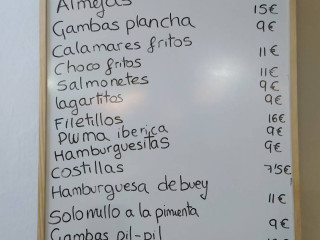 Almejas 15€
Gambas plancha 9€
Calamares fritos 11€
Choco fritos 11€
Salmonetes 9€
lagartitos 9€
Filetillos 16€
Pluma iberica 9€
Hamburguesitas 9€
Costillas 7'5€
Hamburguesa de buey 11€
Solomillo a la pimenta 9€
Gambas pil-pil 9€